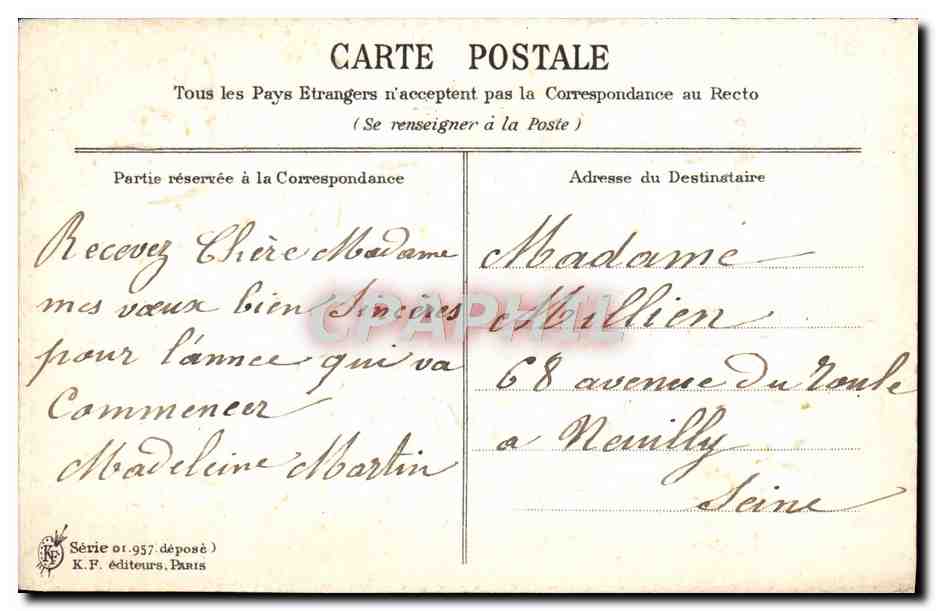 CARTE POSTALE
Tous les Pays Etrangers n'acceptent pas la Correspondance au Recto
(Se renseigner à la Poste)
Partie réservée à la Correspondance
Recevez Chère Madame
mes vœux bien Sincères
pour l'annee qui va
Commencer
Madeleine Martin
Adresse du Destinataire
Madame
Millien
68 avenue du roule
a Neuilly
Seine
CPAPHIL
KF
Série 01.957 déposé)
K.F. éditeurs, PARIS